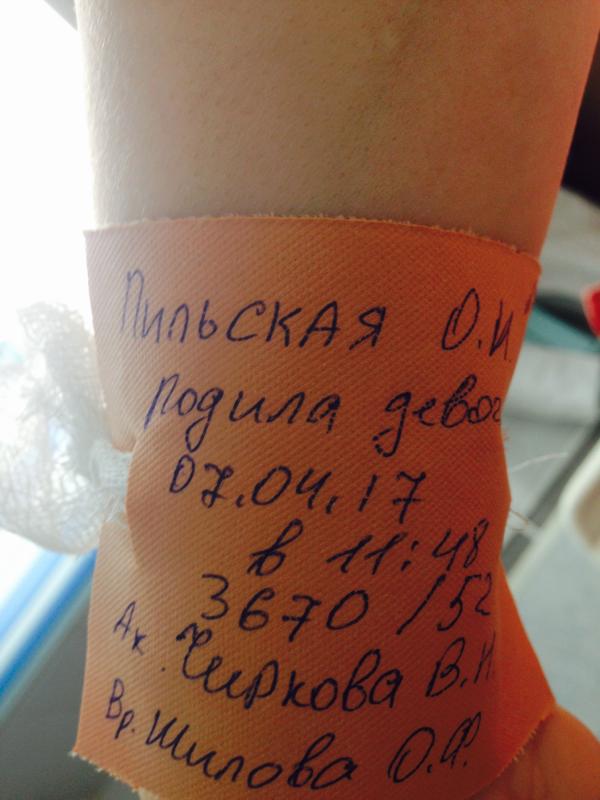 Пильская О.И.
родила девоч
07.04.17
в 11:48
3670/52
Ак. Чиркова В.И.
Вр. Шилова О.Ф.